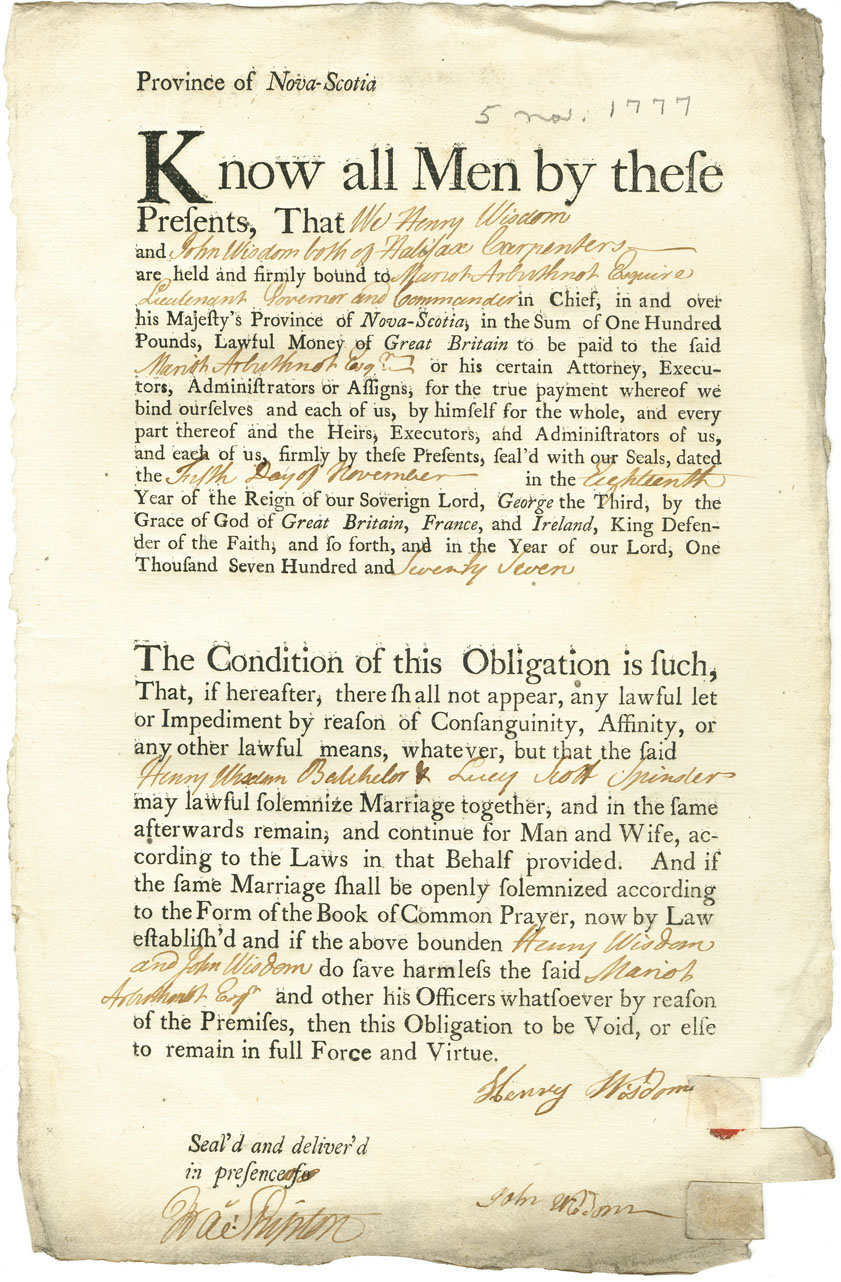 Province of Nova-Scotia
5 nov. 1777
Know all Men by theſe
Preſents, That We Henry Wisdom
and John Wisdom both of Halifax Carpenters
are held and firmly bound to Mariot Arbuthnot Esquire
Lieutenant Governor and Commander in Chief, in and over
his Majeſty's Province of Nova-Scotia, in the Sum of One Hundred
Pounds, Lawful Money of Great Britain to be paid to the ſaid
Mariot Arbuthnot Esqr. or his certain Attorney, Execu-
tors, Adminiſtrators or Aſſigns, for the true payment whereof we
bind ourſelves and each of us, by himſelf for the whole, and every
part thereof and the Heirs, Executors, and Adminiſtrators of us,
and each of us, firmly by theſe Preſents, ſeal'd with our Seals, dated
the Fifth Day of November in the Eighteenth
Year of the Reign of our Soverign Lord, George the Third, by the
Grace of God of Great Britain, France, and Ireland, King Defen-
der of the Faith, and ſo forth, and in the Year of our Lord, One
Thouſand Seven Hundred and Seventy Seven
The Condition of this Obligation is ſuch,
That, if hereafter, there ſhall not appear, any lawful let
or Impediment by reaſon of Conſanguinity, Affinity, or
any other lawful means, whatever, but that the ſaid
Henry Wisdom Batchelor & Lucy Scott Spinster
may lawful ſolemnize Marriage together, and in the ſame
afterwards remain, and continue for Man and Wife, ac-
cording to the Laws in that Behalf provided. And if
the ſame Marriage ſhall be openly ſolemnized according
to the Form of the Book of Common Prayer, now by Law
eſtabliſh'd and if the above bounden Henry Wisdom
and John Wisdom do ſave harmleſs the ſaid Mariot
Arbuthnot Esqr and other his Officers whatſoever by reaſon
of the Premiſes, then this Obligation to be Void, or elſe
to remain in full Force and Virtue.
Henry Wisdom
Seal'd and deliver'd
in preſence of
John Wisdom